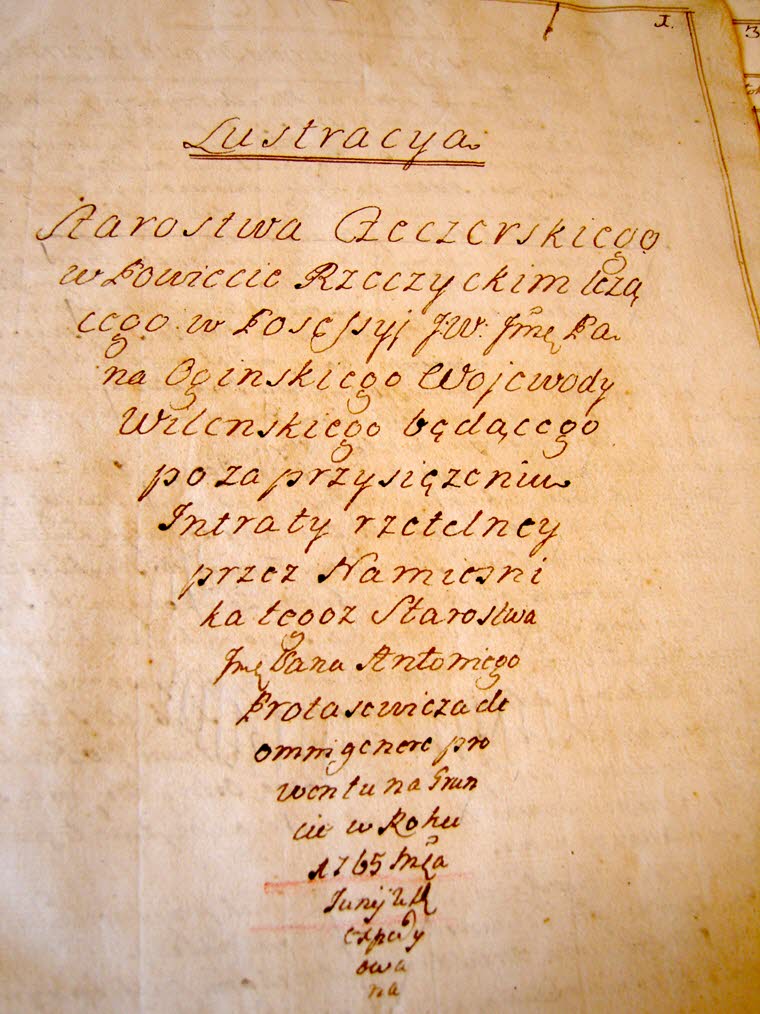 1.
3
Lustracya
Starostwa Czeczerskiego
w Powiecie Rzeczyckim leżą
cego w Posessyj J.W. Jmę Pa
na Oginskiego Wojewody
Wilenskiego będącego
po zaprzysięzeniu
Intraty rzetelney
przez Namiesni
ka tegoz Starostwa
Jmę Pana Antoniego
Protasewicza de
omni genere pro
wentu na Grun
cie w Roku
1765 Mca
Junij
expedy
owa
na